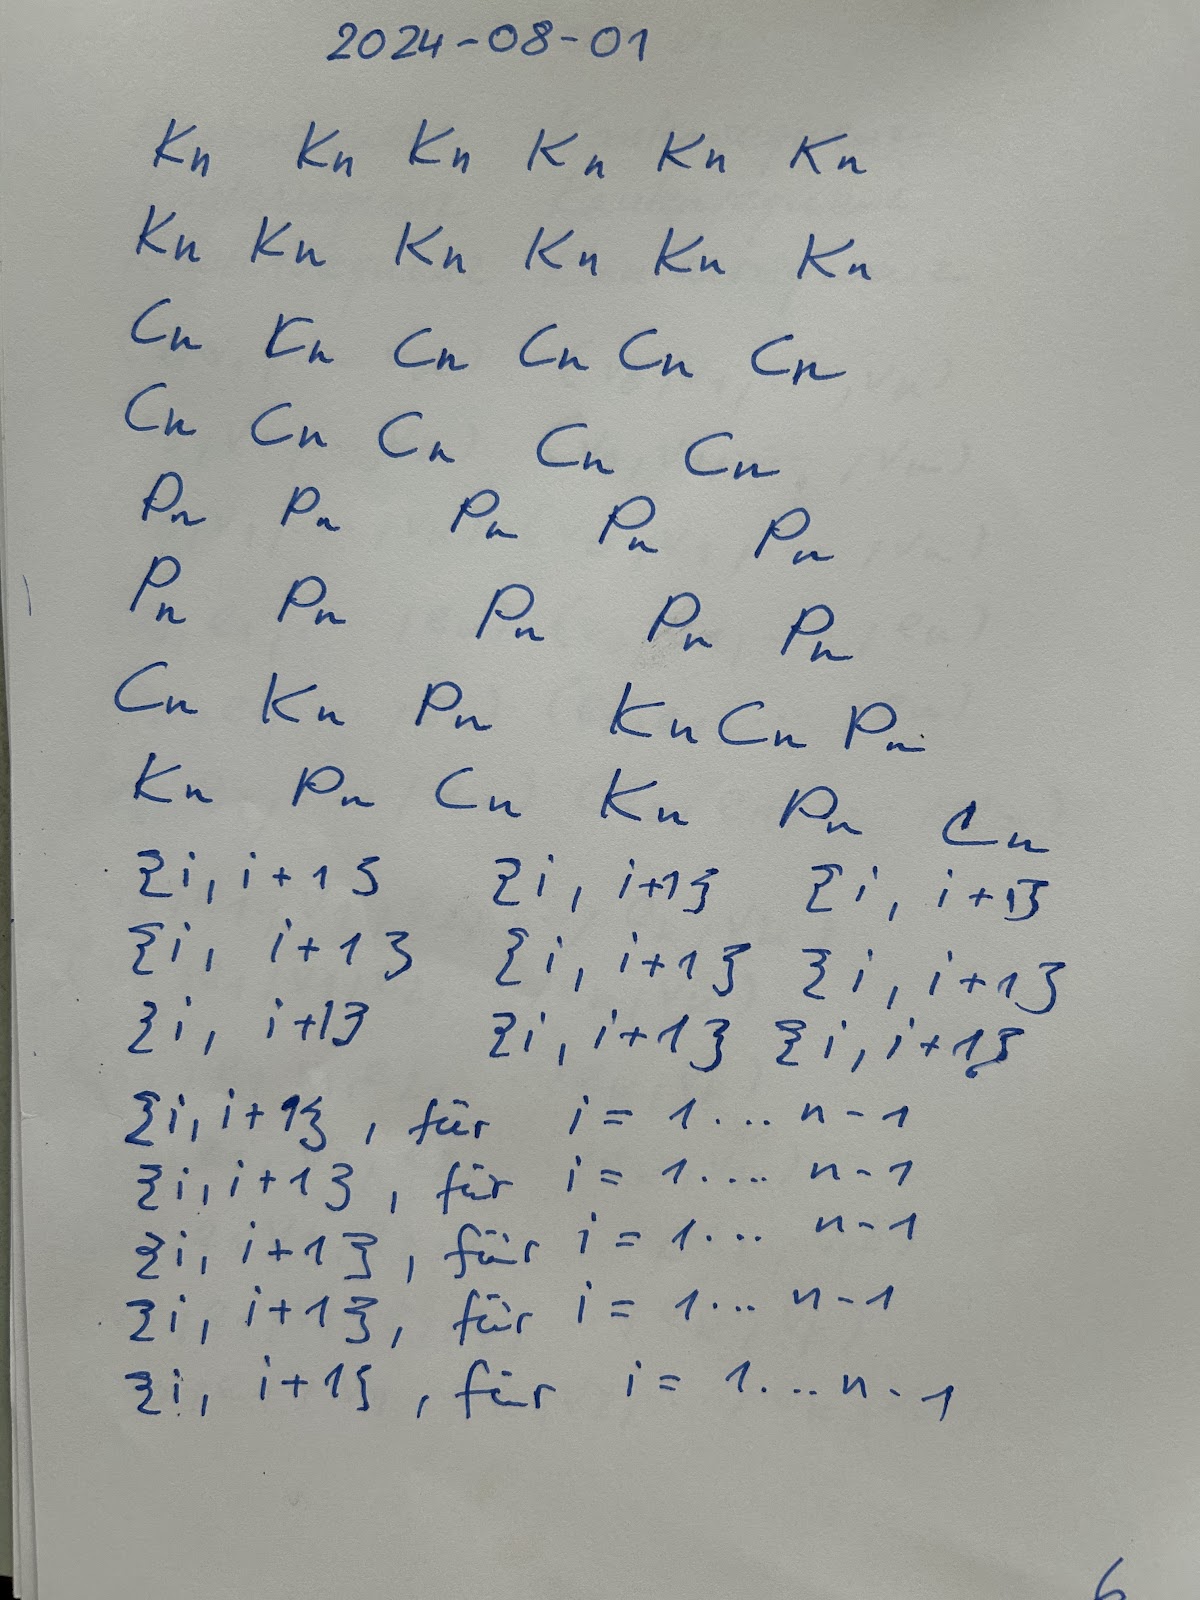 2024-08-01
Kn Kn Kn Kn Kn Kn
Kn Kn Kn Kn Kn Kn
Cn Kn Cn Cn Cn Cn
Cn Cn Cn Cn Cn
Pn Pn Pn Pn Pn
Pn Pn Pn Pn Pn
Cn Kn Pn Kn Cn Pn
Kn Pn Cn Kn Pn Cn
{i, i+1} {i, i+1} {i, i+1}
{i, i+1} {i, i+1} {i, i+1}
{i, i+1} {i, i+1} {i, i+1}
{i, i+1}, für i = 1... n-1
{i, i+1}, für i = 1.... n-1
{i, i+1}, für i = 1... n-1
{i, i+1}, für i = 1... n-1
{i, i+1}, für i = 1...n-1
6